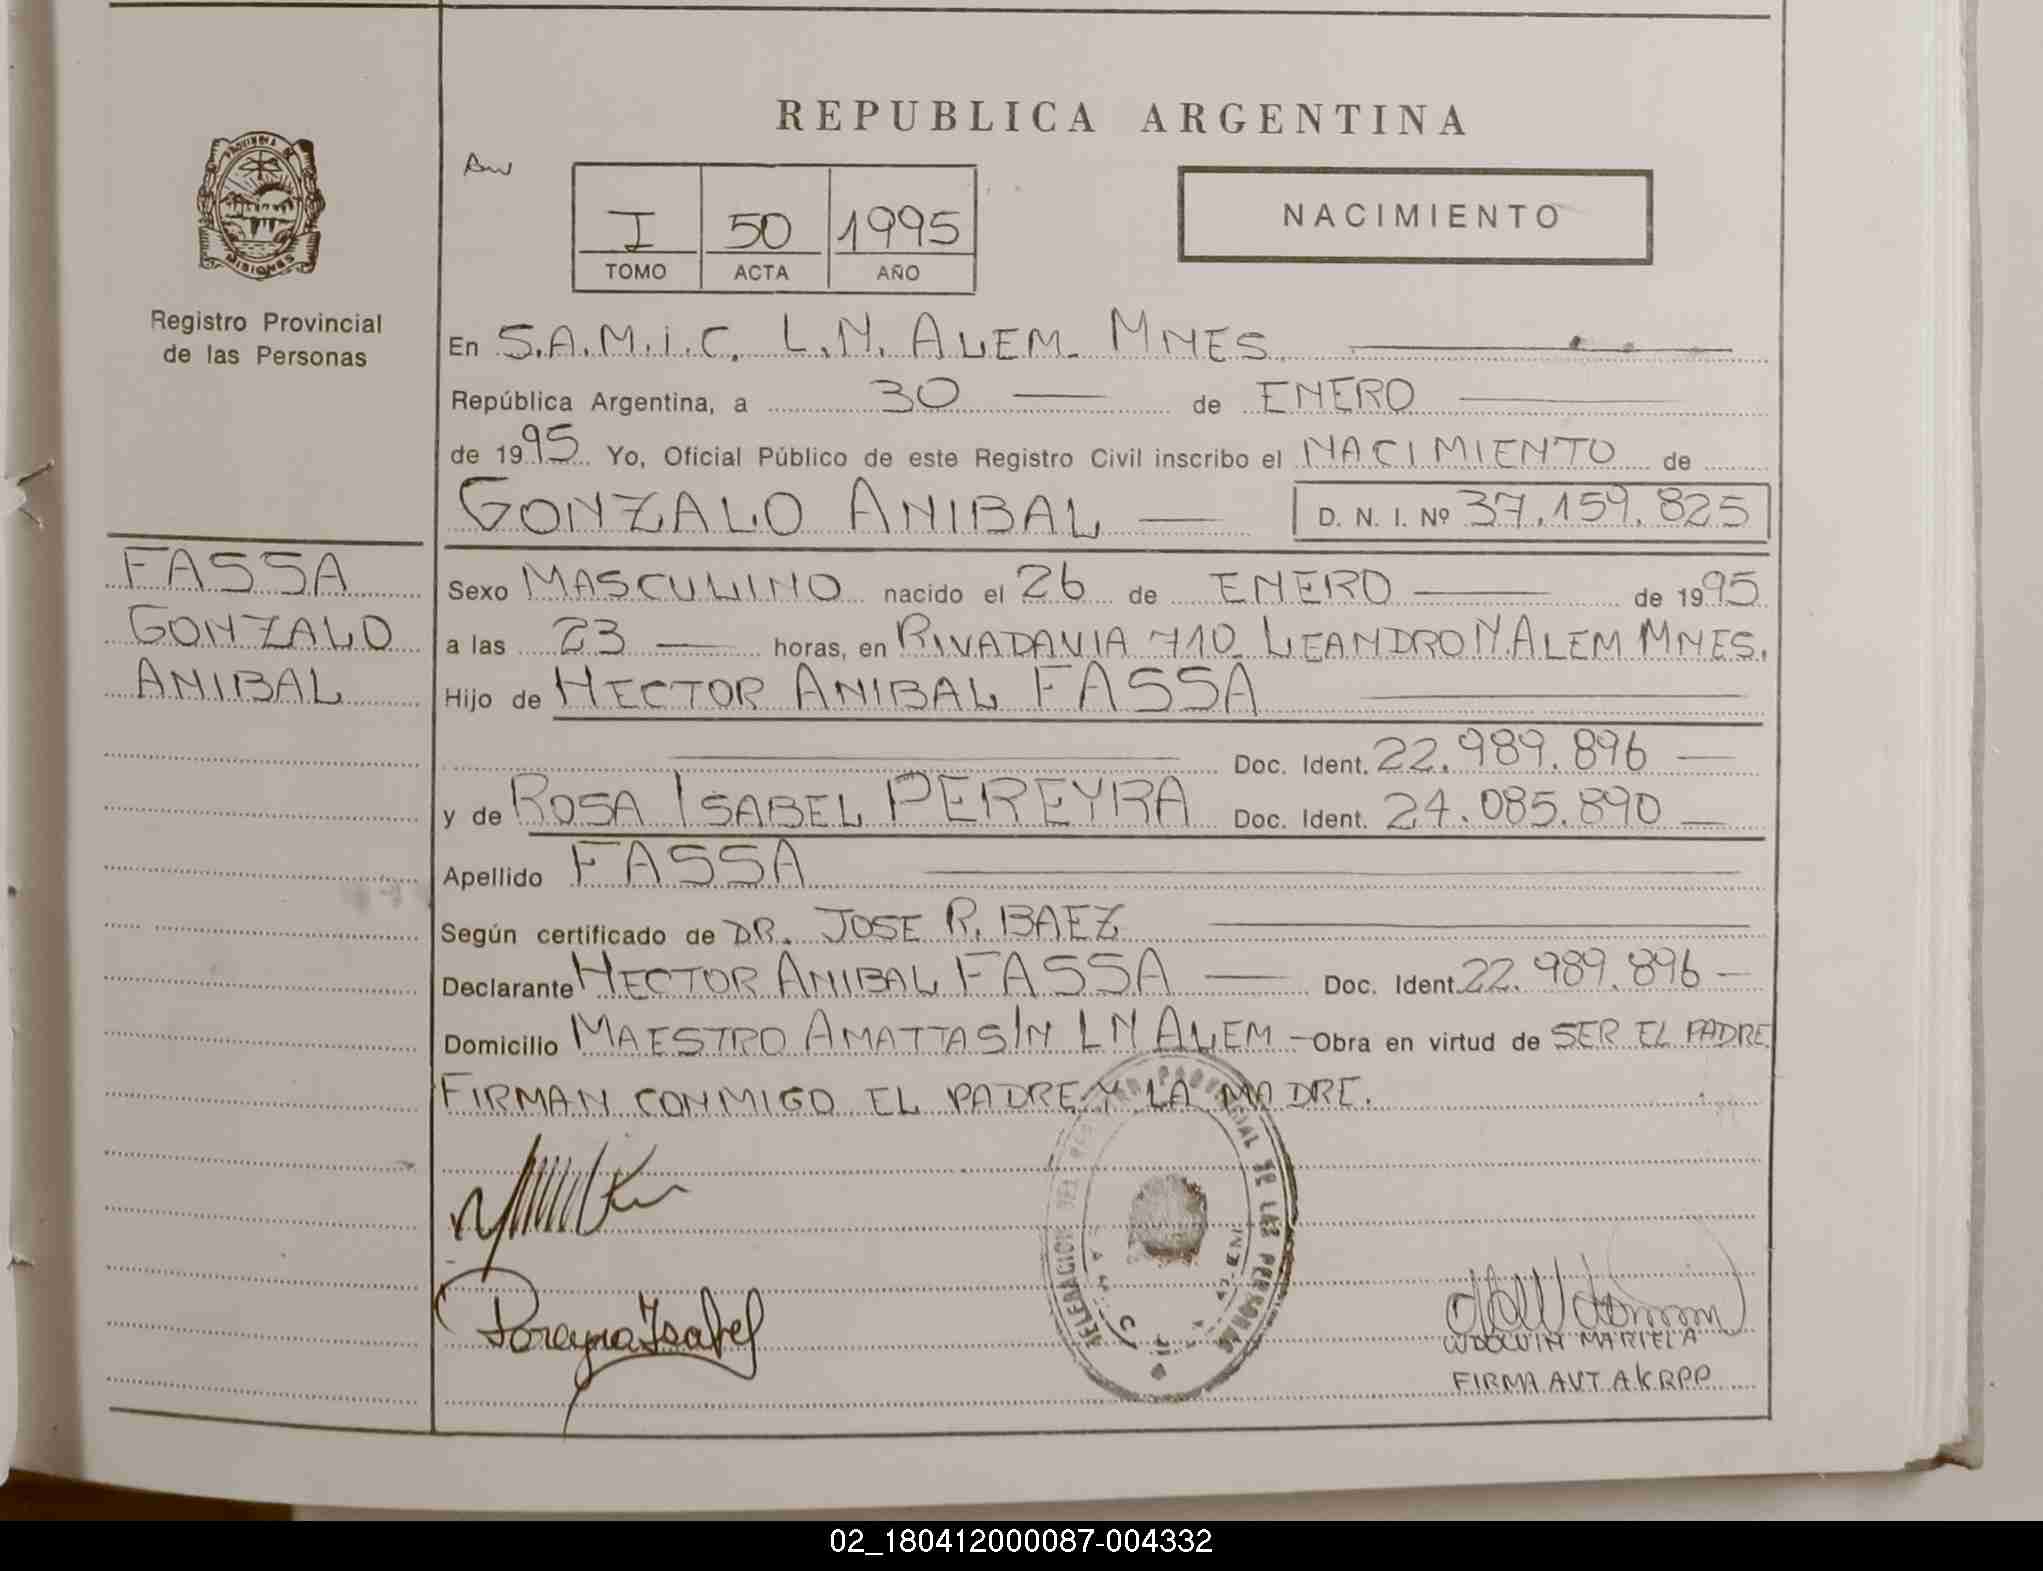 REPUBLICA ARGENTINA
PROVINCIA DE
MISIONES
Registro Provincial
de las Personas
I 50 1995
TOMO ACTA AÑO
NACIMIENTO
En S.A.M.I.C. L.N. ALEM MNES
República Argentina, a 30 de ENERO
de 1995 Yo, Oficial Público de este Registro Civil inscribo el NACIMIENTO de
GONZALO ANIBAL D. N. I. Nº 37.159.825
FASSA
GONZALO
ANIBAL
Sexo MASCULINO nacido el 26 de ENERO de 1995
a las 23 horas, en RIVADAVIA 710 LEANDRO N. ALEM MNES.
Hijo de HECTOR ANIBAL FASSA
Doc. Ident. 22.989.896
y de ROSA ISABEL PEREYRA Doc. Ident. 24.085.890
Apellido FASSA
Según certificado de DR. JOSE R. BAEZ
Declarante HECTOR ANIBAL FASSA Doc. Ident. 22.989.896
Domicilio MAESTRO AMATTA S/N L N ALEM Obra en virtud de SER EL PADRE
FIRMAN CONMIGO EL PADRE Y LA MADRE.
DEL REGISTRO PROVINCIAL DE LAS PERSONAS
Pereyra Isabel
MARIELA
FIRMA AUT. A/C RPP
02_180412000087-004332